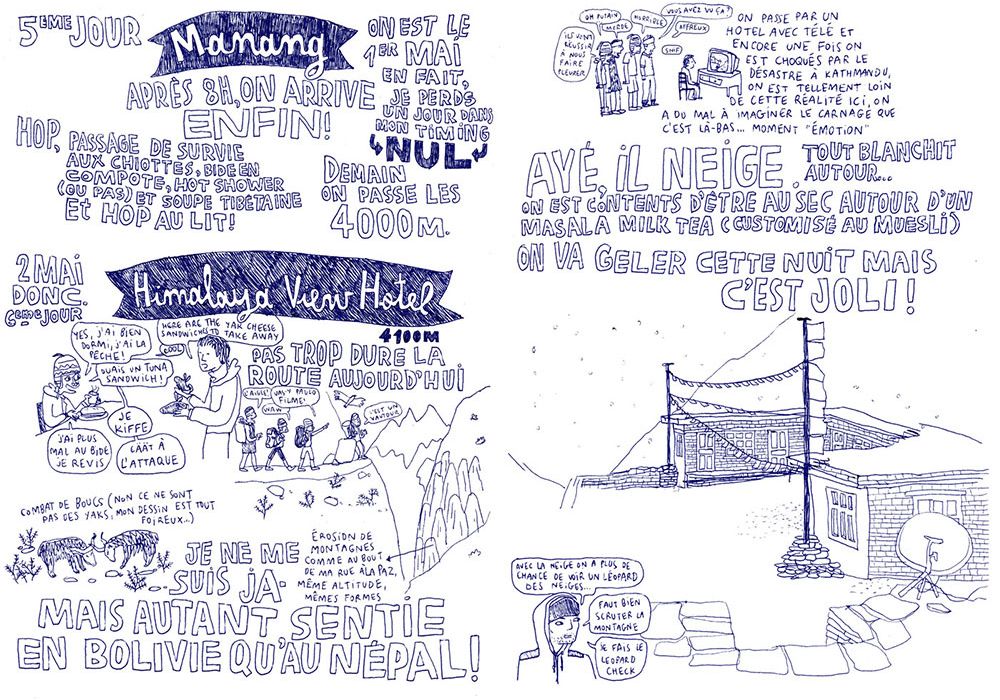 5ÈME JOUR
Manang
APRÈS 8H, ON ARRIVE
ENFIN!
ON EST LE
1ER MAI
EN FAIT,
JE PERDS
UN JOUR DANS
MON TIMING
NUL
HOP, PASSAGE DE SURVIE
AUX CHIOTTES, BIDE EN
COMPOTE, HOT SHOWER
(OU PAS) ET SOUPE TIBÉTAINE
ET HOP AU LIT!
DEMAIN
ON PASSE LES
4000M.
2 MAI
DONC.
6ÈME JOUR
Himalaya View Hotel
4100M
YES, J'AI BIEN
DORMI, J'AI LA
PÊCHE!
HERE ARE THE YAK CHEESE
SANDWICHES TO TAKE AWAY
COOL
OUAIS UN TUNA
SANDWICH!
JE
KIFFE
J'AI PLUS
MAL AU BIDE
JE REVIS
CÂÂT À
L'ATTAQUE
PAS TROP DURE LA
ROUTE AUJOURD'HUI
L'AIGLE!
WAW
VAS-Y PAULO
FILME!
C'EST UN
VAUTOUR
COMBAT DE BOUCS (NON CE NE SONT
PAS DES YAKS, MON DESSIN EST TOUT
FOIREUX...)
ÉROSION DE
MONTAGNES
COMME AU BOUT
DE MA RUE À LA PAZ,
MÊME ALTITUDE,
MÊMES FORMES
JE NE ME
SUIS JA-
MAIS AUTANT SENTIE
EN BOLIVIE QU'AU NÉPAL!
ILS VONT
RÉUSSIR
À NOUS
FAIRE
PLEURER
OH PUTAIN
MERDE
HORRIBLE
VOUS AVEZ VU ÇA?
AFFREUX
SNIF
ON PASSE PAR UN
HOTEL AVEC TÉLÉ ET
ENCORE UNE FOIS ON
EST CHOQUÉS PAR LE
DÉSASTRE À KATHMANDU,
ON EST TELLEMENT LOIN
DE CETTE RÉALITÉ ICI, ON
A DU MAL À IMAGINER LE CARNAGE QUE
C'EST LÀ-BAS... MOMENT "ÉMOTION"
AYÉ, IL NEIGE.
TOUT BLANCHIT
AUTOUR...
ON EST CONTENTS D'ÊTRE AU SEC AUTOUR D'UN
MASALA MILK TEA (CUSTOMISÉ AU MUESLI)
ON VA GELER CETTE NUIT MAIS
C'EST JOLI!
AVEC LA NEIGE ON A PLUS DE
CHANCE DE VOIR UN LÉOPARD
DES NEIGES...
FAUT BIEN
SCRUTER LA
MONTAGNE
JE FAIS LE
LEOPARD
CHECK